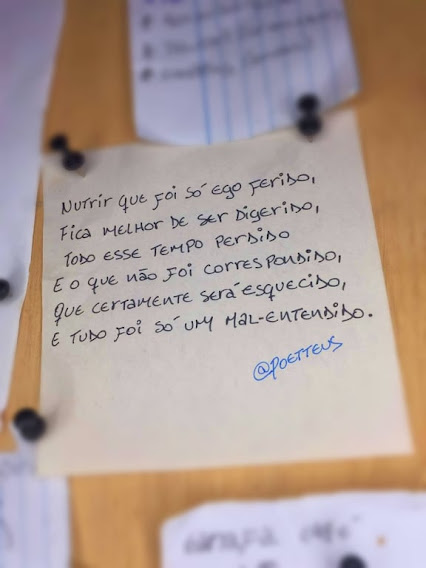 Nutrir que foi só ego ferido,
Fica melhor de ser digerido,
Todo esse tempo perdido
E o que não foi correspondido,
Que certamente será esquecido,
E tudo foi só um mal-entendido.
@poetteus